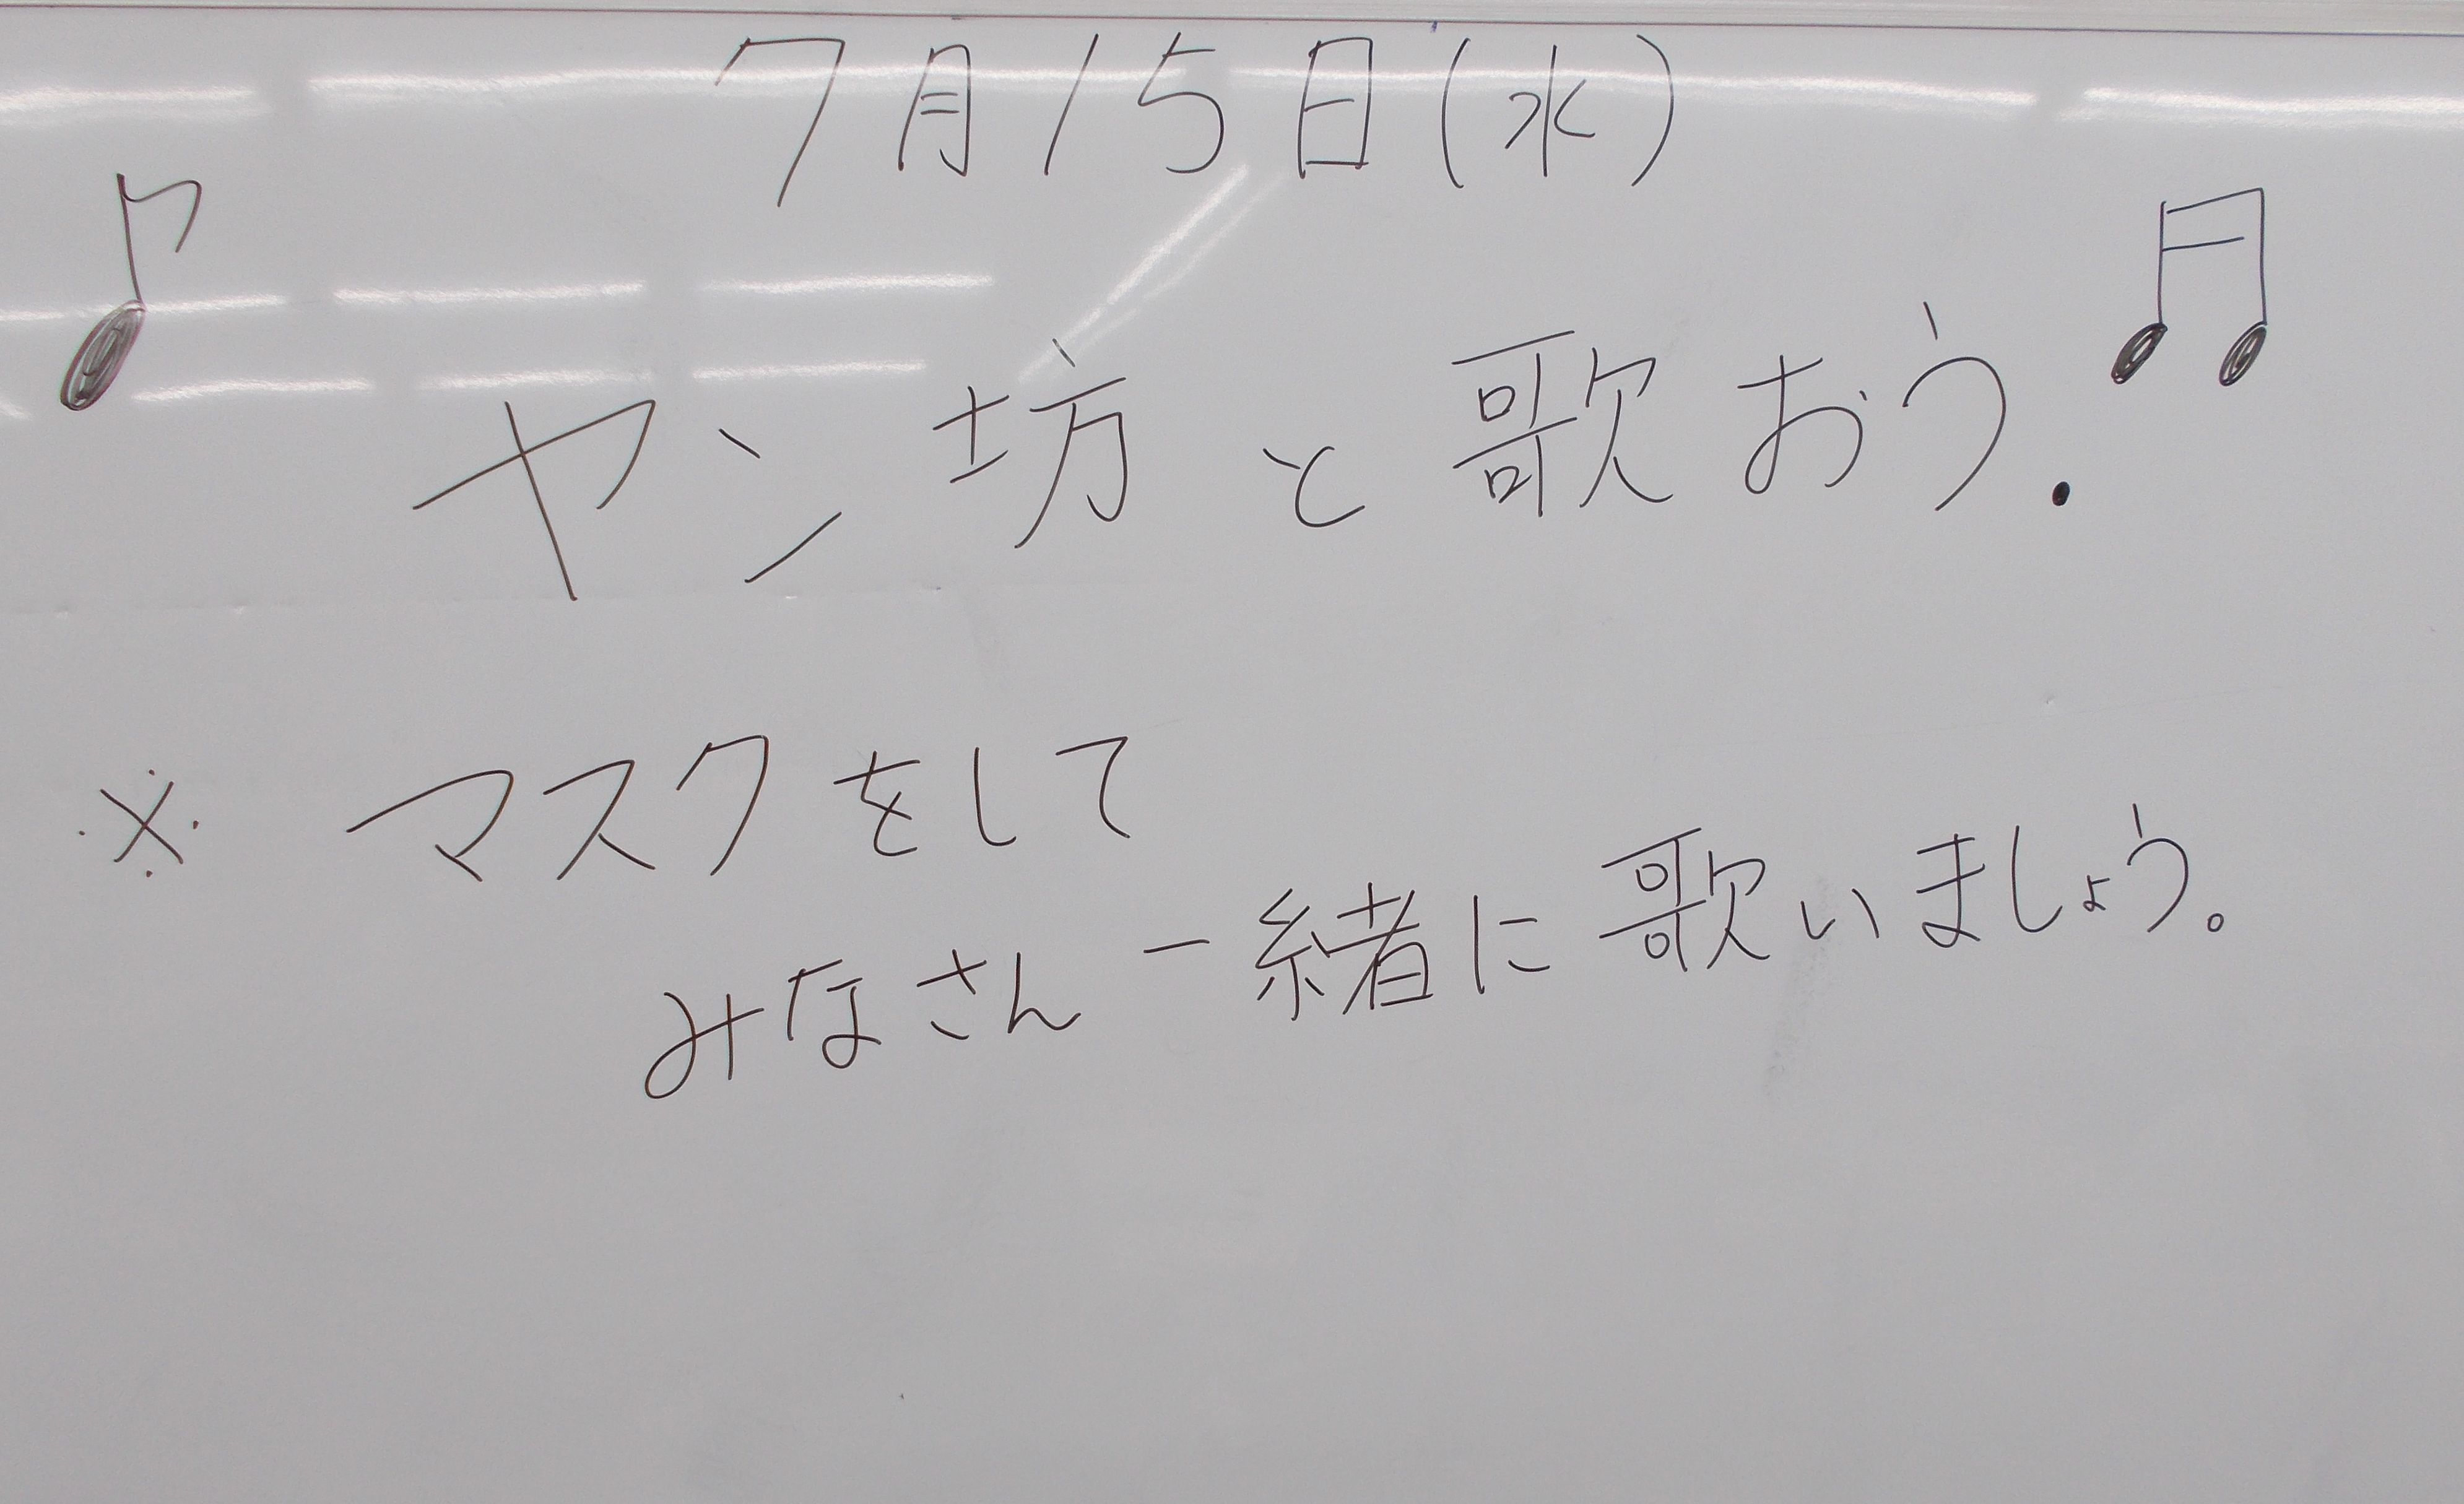 7月15日(水)
♪ ヤン坊と歌おう. ♬
※ マスクをして
みなさん一緒に歌いましょう。